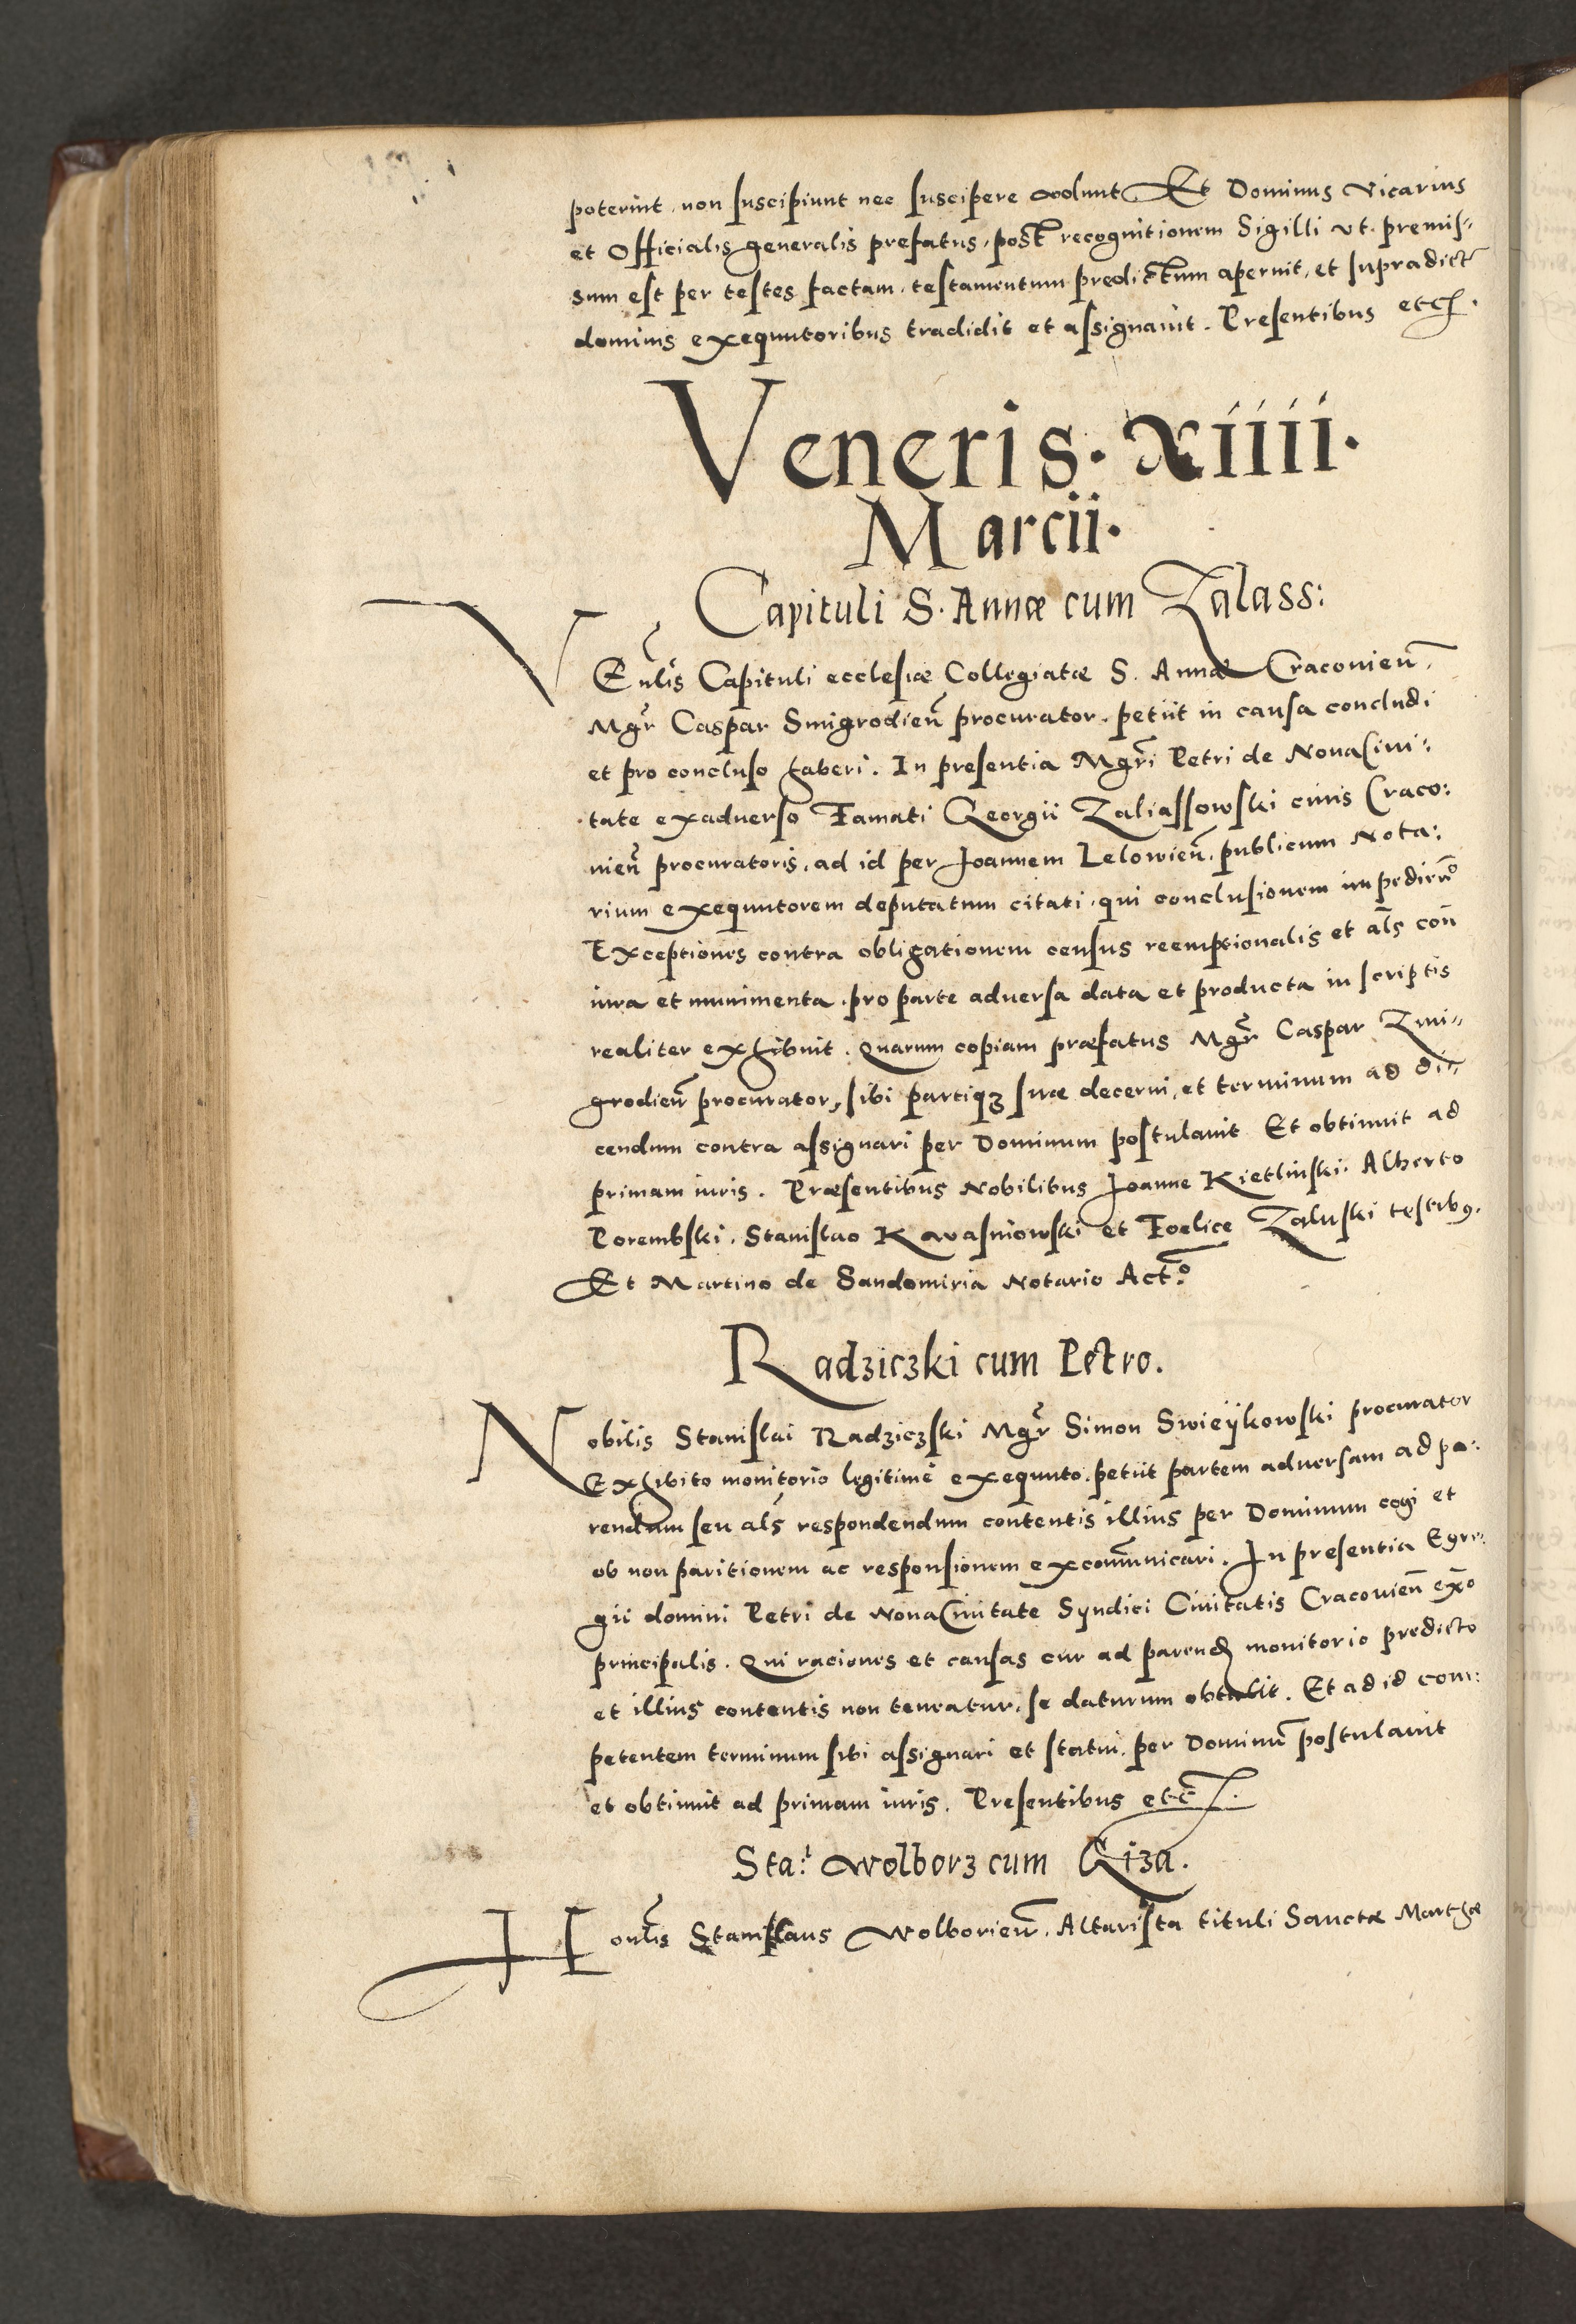 poterint, non suscipiunt nec suscipere volunt Et Dominus Vicarius
et Officialis generalis prefatus, post recognitionem Sigilli ut premis„
sum est per testes factam, testamentum predictum aperuit, et supradict
dominis exequutoribus tradidit et assignauit. Presentibus etc.
Veneris. xiiii.
Marcii.
Capituli S. Annæ cum Zalass:
VEnlis Capituli ecclesiæ Collegiatæ S. Annæ Cracouien̄.
Mgr̄ Caspar Smigrodien̄ procurator, petiit in causa concludi
et pro concluso haberi. In presentia Mgrī Petri de NouaCiui:
tate exaduerso Famati Georgii Zaliassowski ciuis Craco:
uien̄ procuratoris, ad id per Joannem Lelowien̄. publicum Nota:
rium exequutorem deputatum citati, qui conclusionem impediendo
Exceptiones contra obligationem census reemptionalis et al̄s con̄
iura et munimenta, pro parte aduersa data et producta in scriptis
realiter exhibuit. Quarum copiam præfatus Mgr̄ Caspar Zmi„
grodien̄ procurator, sibi partiqʒ suæ decerni, et terminum ad di„
cendum contra assignari per Dominum postulauit Et obtinuit ad
primam iuris. Præsentibus Nobilibus Joanne Kietlinski. Alberto
Porembski. Stanislao Kwasniowski et Foelice Zaluski testibꝰ.
Et Martino de Sandomiria Notario Act.º
Radziczki cum Petro.
Nobilis Stanislai Radziczski Mgr̄ Simon Swieÿkowski procurator
Exhibito monitorio legitime exequuto, petiit partem aduersam ad pa:
rendum seu al̄s respondendum contentis illius per Dominum cogi et
ob non paritionem ac responsionem excom̄unicari. In presentia Egre:
gii domini Petri de NouaCiuitate Syndici Ciuitatis Cracouien̄ ex̄o
principalis. Qui raciones et causas cur ad parend monitorio predicto
et illius contentis non teneatur, se daturum obtulit. Et ad id com:
petentem terminum sibi assignari et statui, per Dominū postulauit
et obtinuit ad primam iuris. Presentibus etc.
Sta: Wolborz cum Giza.
Honlis Stanislaus Wolborien̄. Altarista tituli Sanctæ Marthæ